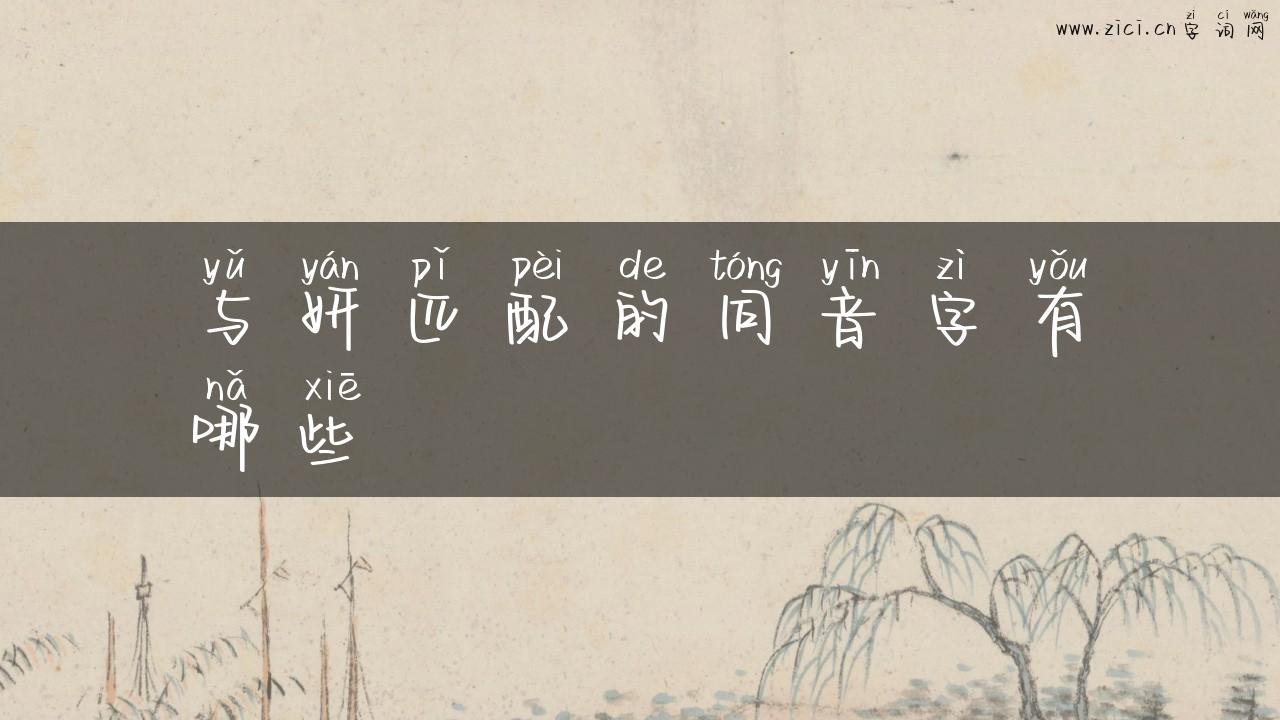 zì cí wǎng
www.zici.cn 字词网
yǔ yán pǐ pèi de tóng yīn zì yǒu
与妍匹配的同音字有
nǎ xiē
哪些